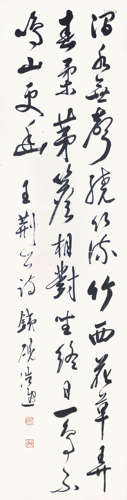 澗水無聲繞竹流竹西花草弄
春柔茅簷相對坐終日一鳥不
鳴山更幽 王荊公詩 鐵硯